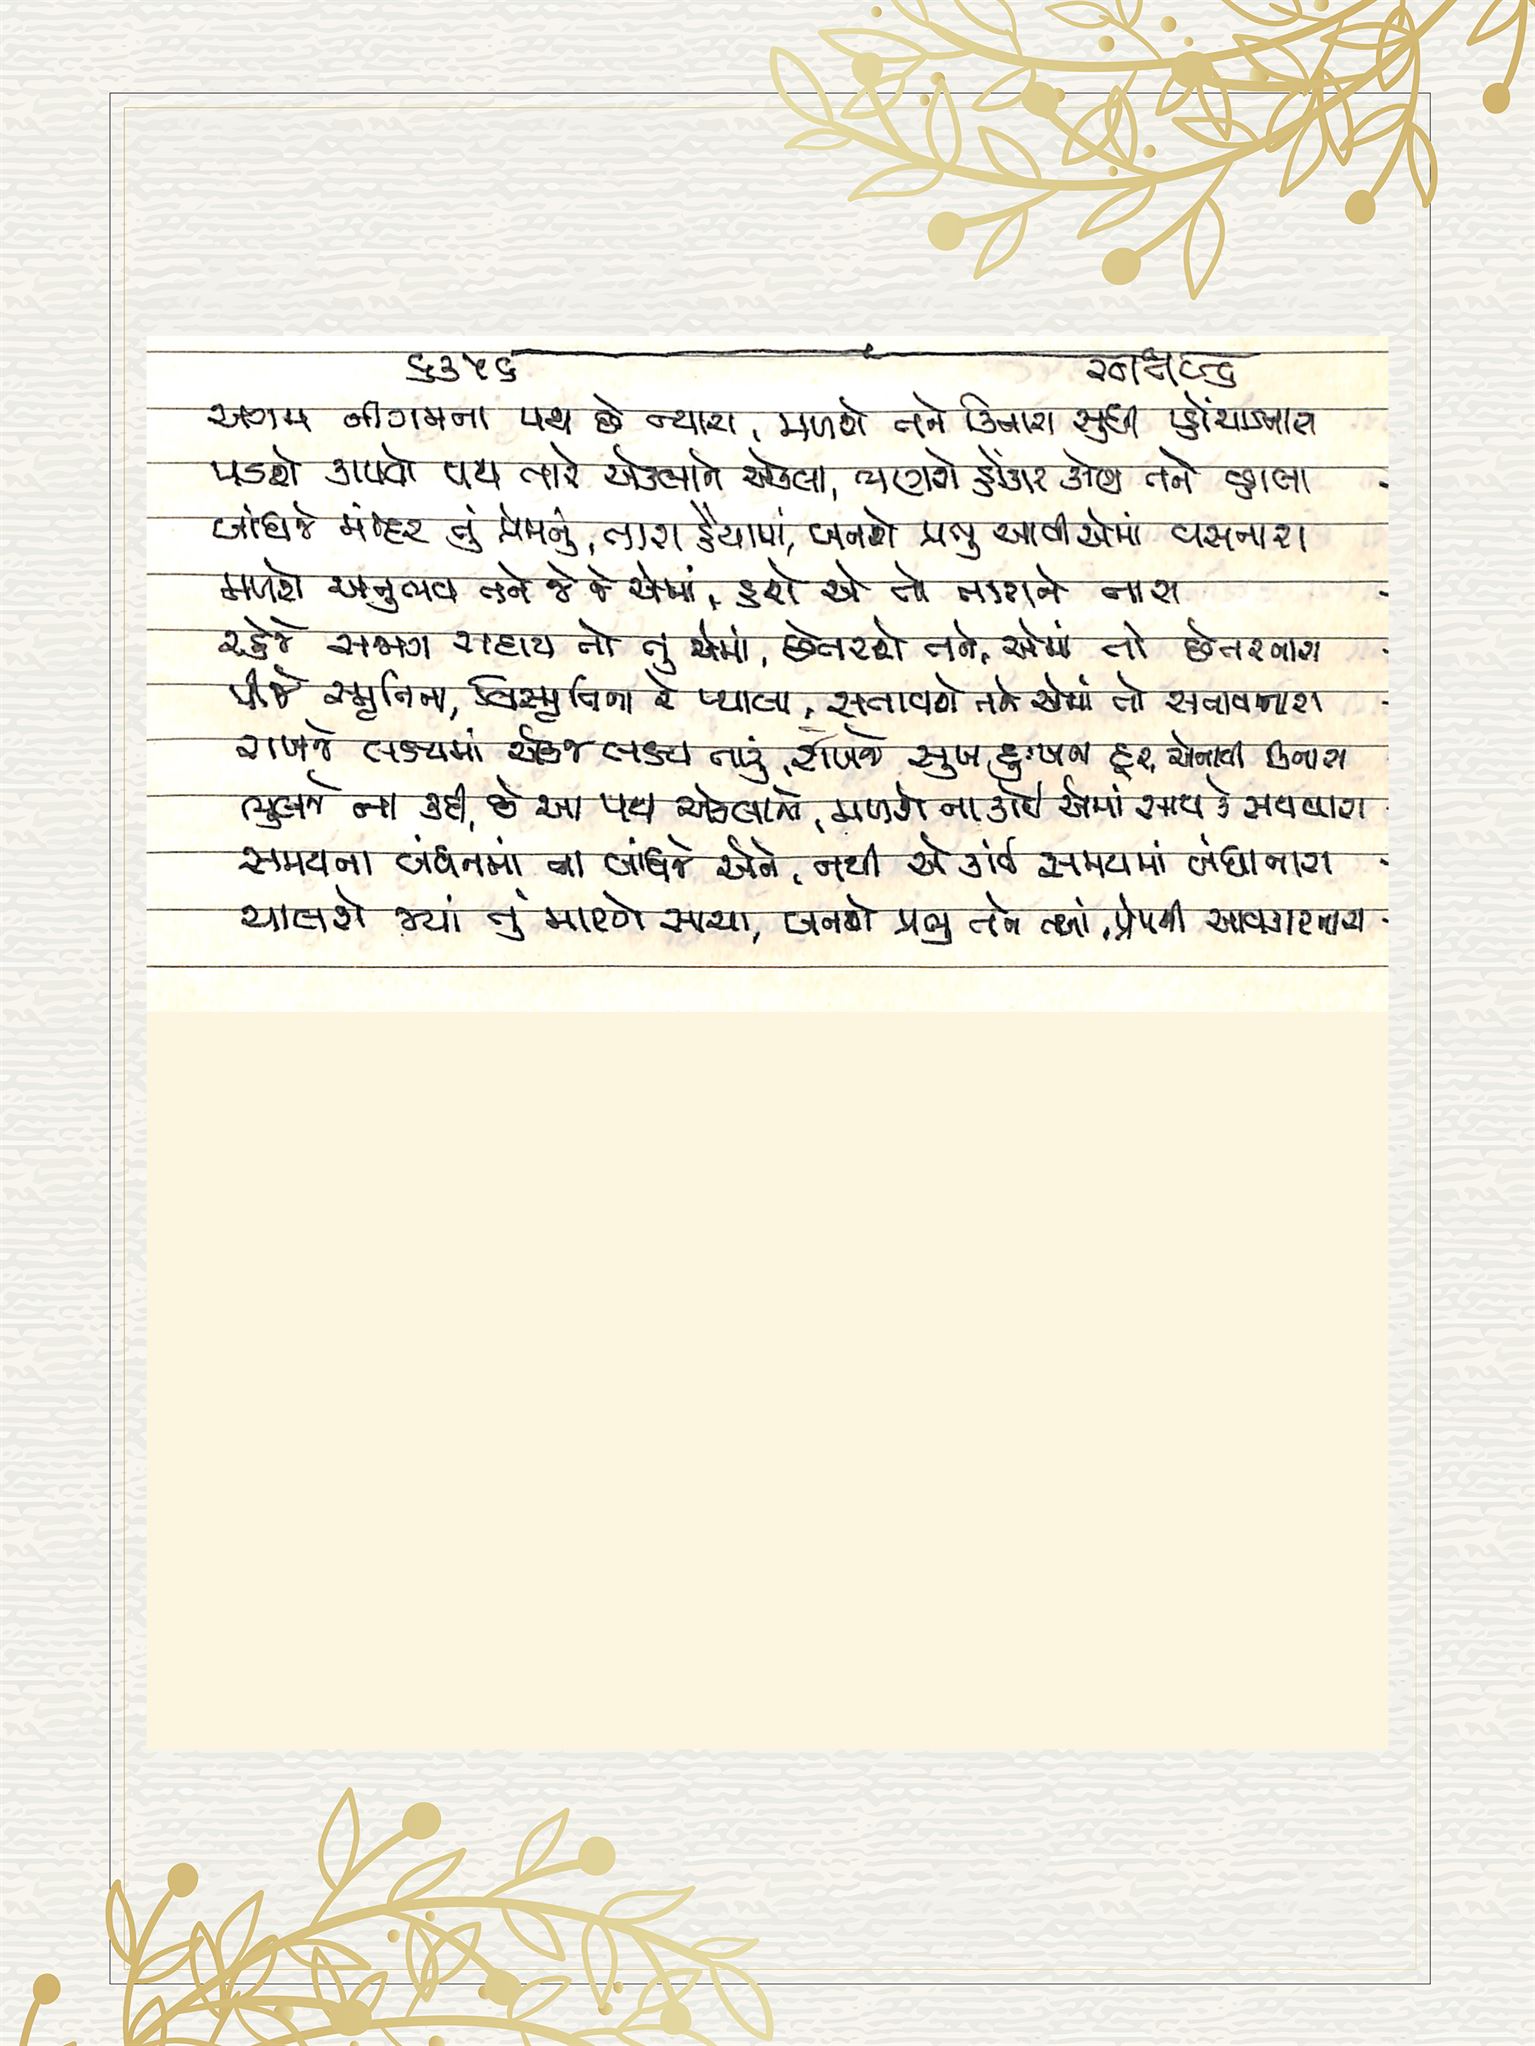 ૬૩૫૬
અગમ નીગમના પથ છે ન્યારા, મળશે તને કિનારા સુધી પ્હોંચાડનારા
પડશે કાપવો પથ તારે એકલાને એકલા, ભણશે હોંકાર કોણ તને વ્હાલા
બાંધજે મંદિર તું પ્રેમનું, તારા હૈયામાં, બનશે પ્રભુ આવી એમાં વસનારા
મળશે અનુભવ તને જે જે એમાં, હશે એ તો તારાને તારા
રહેજે સજાગ સદાય તો તું એમાં, છેતરશે તને, એમાં તો છેતરનારા
પીજે સ્મૃતિના, વિસ્મૃતિના રે પ્યાલા, સતાવશે તને એમાં તો સતાવનારા
રાખજે લક્ષ્યમાં એકજ લક્ષ્ય તારું, રાખજે સુખ દુઃખના દૂર, એનાથી કિનારા
ભુલજે ના કદી, છે આ પથ એકલાનો, મળશે ના કોઈ એમાં સાથ કે સથવારા
સમયના બંધનમાં ના બાંધજે એને, નથી એ કાંઈ સમયમાં બંધાનારા
ચાલશે જ્યાં તું મારગે સાચા, બનશે પ્રભુ તને ત્યાં, પ્રેમથી આવકારનારા